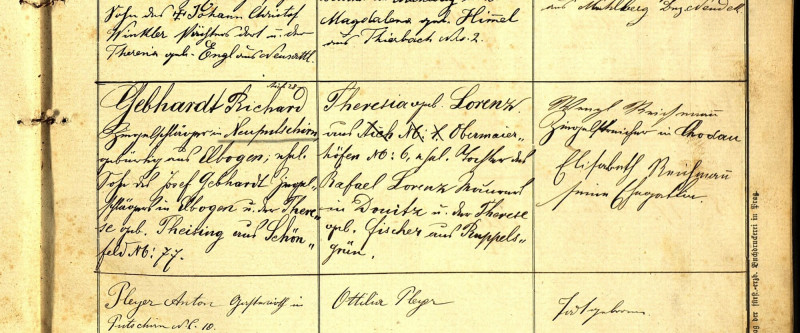 Sohn des † Johann Christof
Winkler dort u. der
Theresia geb. Engl aus Neusattl.
Magdalena geb. Himmel
aus Thierbach Nro. 2.
aus Mühlberg Bez. Neudek
Gebhardt Richard
Ziegelschläger in Neuputschirn
gebürtig aus Elbogen; ehel.
Sohn des Josef Gebhardt Ziegel-
schlägers in Elbogen u. der There-
se geb. Theising aus Schön-
feld No: 77.
Theresia geb. Lorenz
aus Aich No: X. Obermaier-
höfen No: 6, ehel. Tochter des
Rafael Lorenz Maurers
in Donitz u. der Therese
geb. Fischer aus Ruppels-
grün.
Wenzl Reichmann
Ziegelstreicher in Chodau
Elisabeth Reichmann
seine Ehegattin.
Pleyer Anton Gastwirth in
Putschirn N.C. 10.
Ottilia Pleyer
Todtgeboren
der fürst.-erzb. Buchdruckerei in Prag.